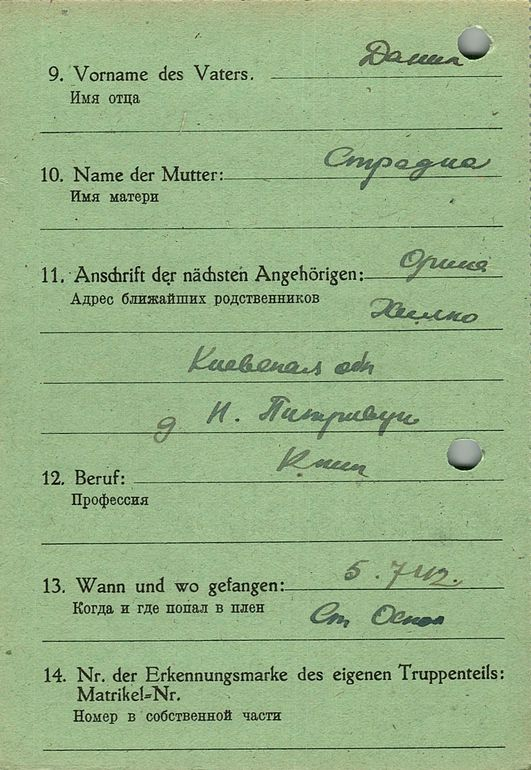 9. Vorname des Vaters. Данил
Имя отца
10. Name der Mutter: Страдна
Имя матери
11. Anschrift der nächsten Angehörigen: Орина
Адрес ближайших родственников
Хилко
Киевская обл
д Н. Питривун
12. Beruf:
Профессия
13. Wann und wo gefangen: 5.7 42.
Когда и где попал в плен Ст Оскол
14. Nr. der Erkennungsmarke des eigenen Truppenteils:
Matrikel=Nr.
Номер в собственной части